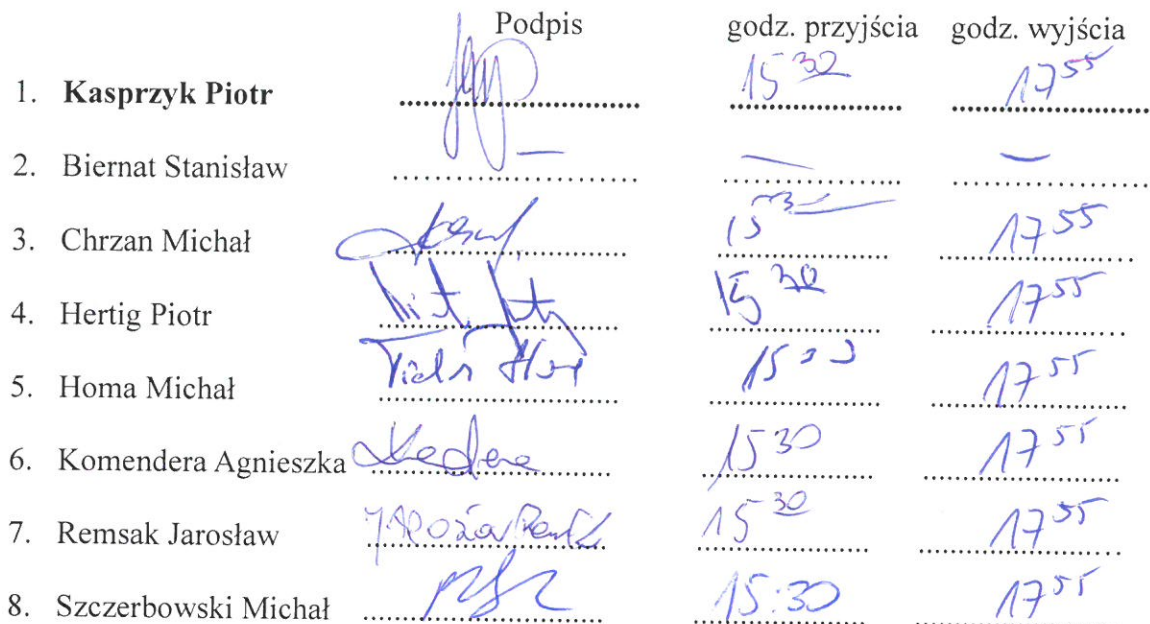 Podpis godz. przyjścia godz. wyjścia
1. Kasprzyk Piotr 15 30 17 55
2. Biernat Stanisław — — —
3. Chrzan Michał 15 17 55
4. Hertig Piotr 15 30 17 55
5. Homa Michał 15 17 55
6. Komendera Agnieszka 15 30 17 55
7. Remsak Jarosław 15 30 17 55
8. Szczerbowski Michał 15:30 17 55